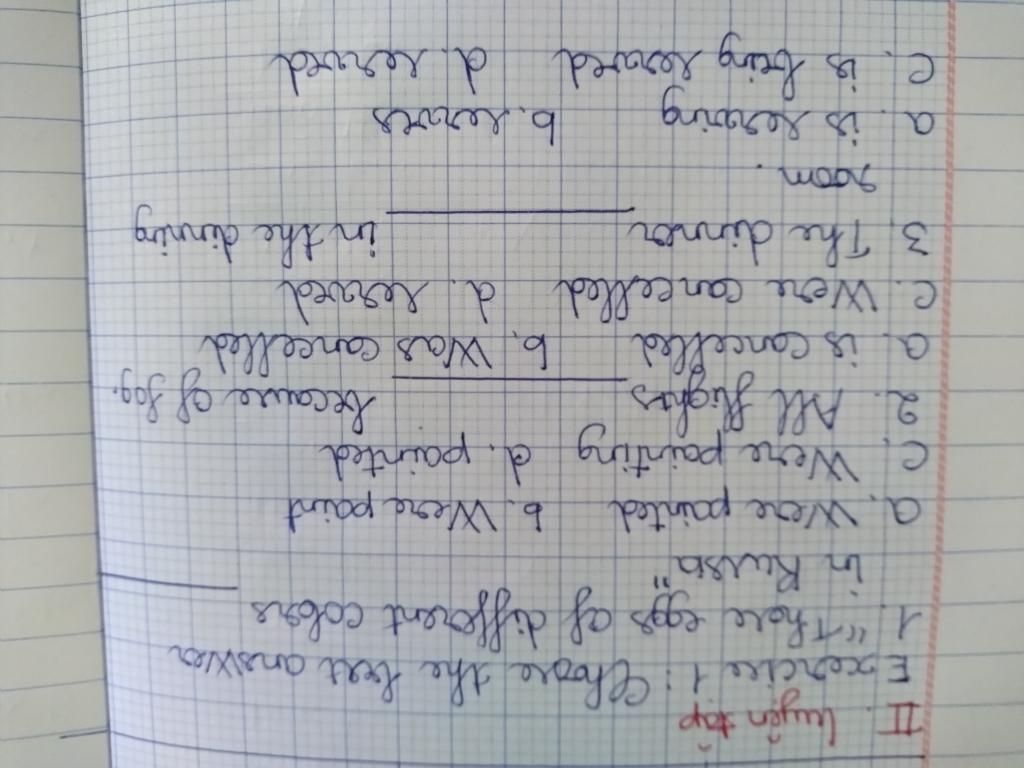 II. luyện tập
Exercise 1: Choose the best answer
1. "Those eggs of different colors ______
in Russia"
a. Were painted b. Were paint
c. Were painting d. painted
2. All flighs ______ because of fog.
a. is cancelled b. Was cancelled
c. Were cancelled d. served
3. The dinner ______ in the dinning
room.
a. is serving b. serves
c. is being served d. served